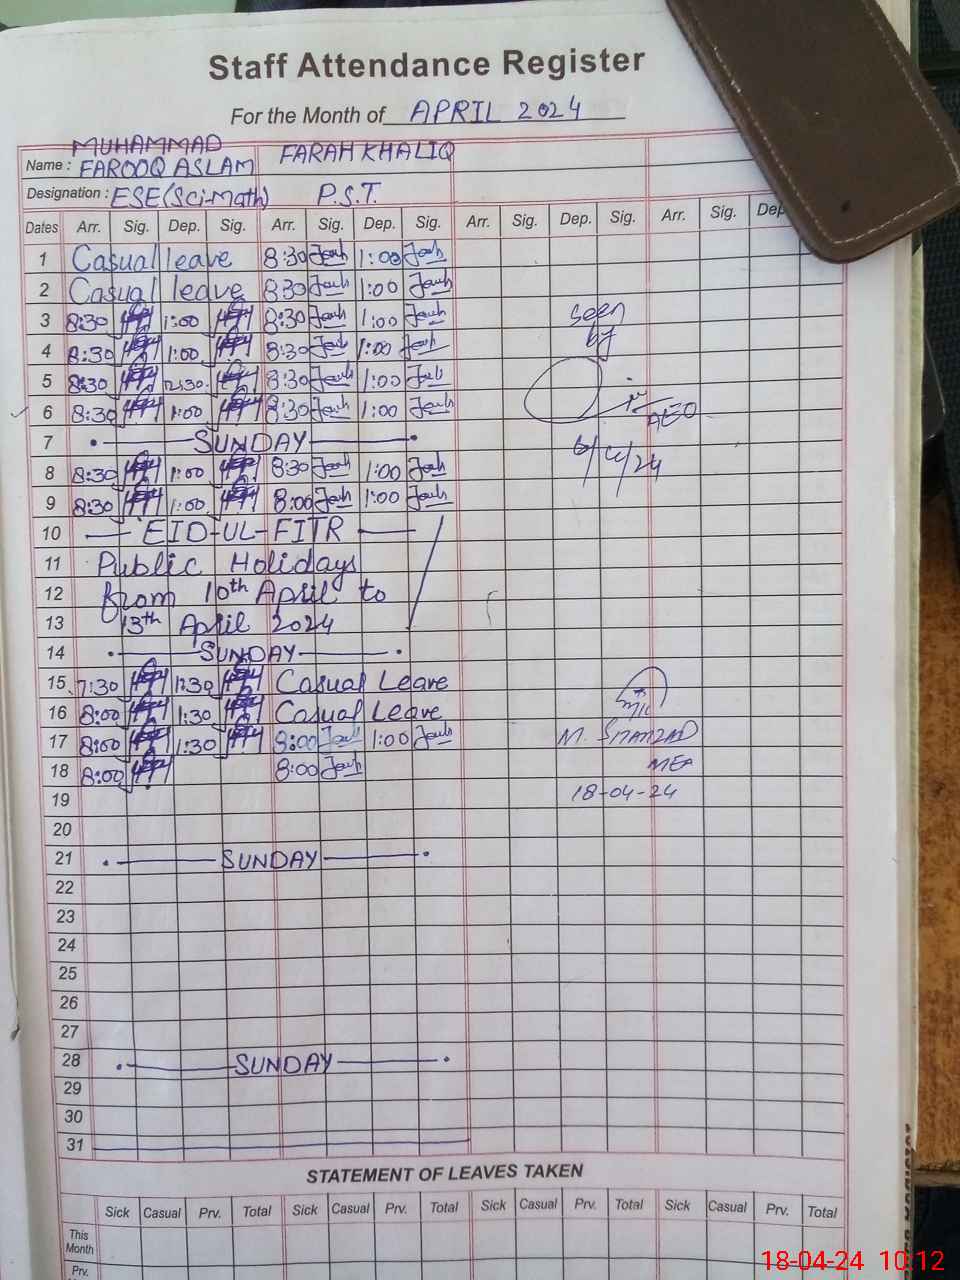 Staff Attendance Register
For the Month of APRIL 2024
MUHAMMAD
Name : FAROOQ ASLAM FARAH KHALIQ
Designation : ESE(Sci-Math) P.S.T.
Dates Arr. Sig. Dep. Sig. Arr. Sig. Dep. Sig. Arr. Sig. Dep. Sig. Arr. Sig. Dep
1 Casual leave 8:30 1:00
2 Casual leave 8:30 1:00
3 8:30 1:00 8:30 1:00 Seen
4 8:30 1:00 8:30 1:00 by
5 8:30 12:30 8:30 1:00
6 8:30 1:00 8:30 1:00 AEO
7 SUNDAY 6/4/24
8 8:30 1:00 8:30 1:00
9 8:30 1:00 8:00 1:00
10 EID-UL-FITR
11 Public Holidays
12 from 10th April to
13 13th April 2024
14 SUNDAY
15 7:30 1:30 Casual Leave
16 8:00 1:30 Casual Leave
17 8:00 1:30 8:00 1:00 M. SHAHZAD
18 8:00 8:00 MEA
19 18-04-24
20
21 SUNDAY
22
23
24
25
26
27
28 SUNDAY
29
30
31
STATEMENT OF LEAVES TAKEN
Sick Casual Prv. Total Sick Casual Prv. Total Sick Casual Prv. Total Sick Casual Prv. Total
This
Month
Prv.
18-04-24 10:12